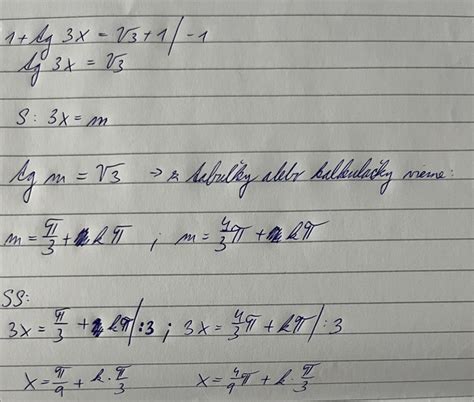 1 + tg 3x = √3 + 1 / -1
tg 3x = √3
S: 3x = m
tg m = √3 → z tabuľky alebo kalkulačky vieme:
m = π/3 + kπ ; m = 4/3 π + kπ
SS:
3x = π/3 + kπ / :3 ; 3x = 4/3 π + kπ / :3
x = π/9 + k · π/3 x = 4/9 π + k · π/3